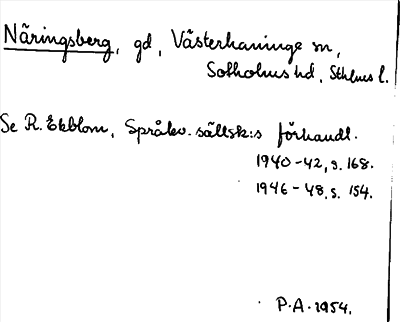 Näringsberg, gd, Västerhaninge sn,
Sotholms hd, Sthlms l.
Se R. Ekblom, Språkv. sällsk:s förhandl.
1940-42, s. 168.
1946-48, s. 154.
P.A. 1954.